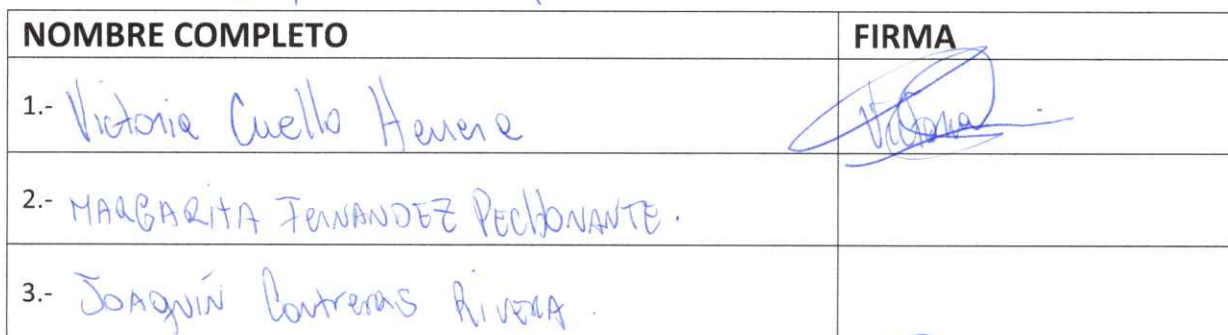 NOMBRE COMPLETO FIRMA
1.- Victoria Cuello Herrera Victoria
2.- MARGARITA FERNANDEZ
3.- JOAQUÍN Contreras RIVERA.